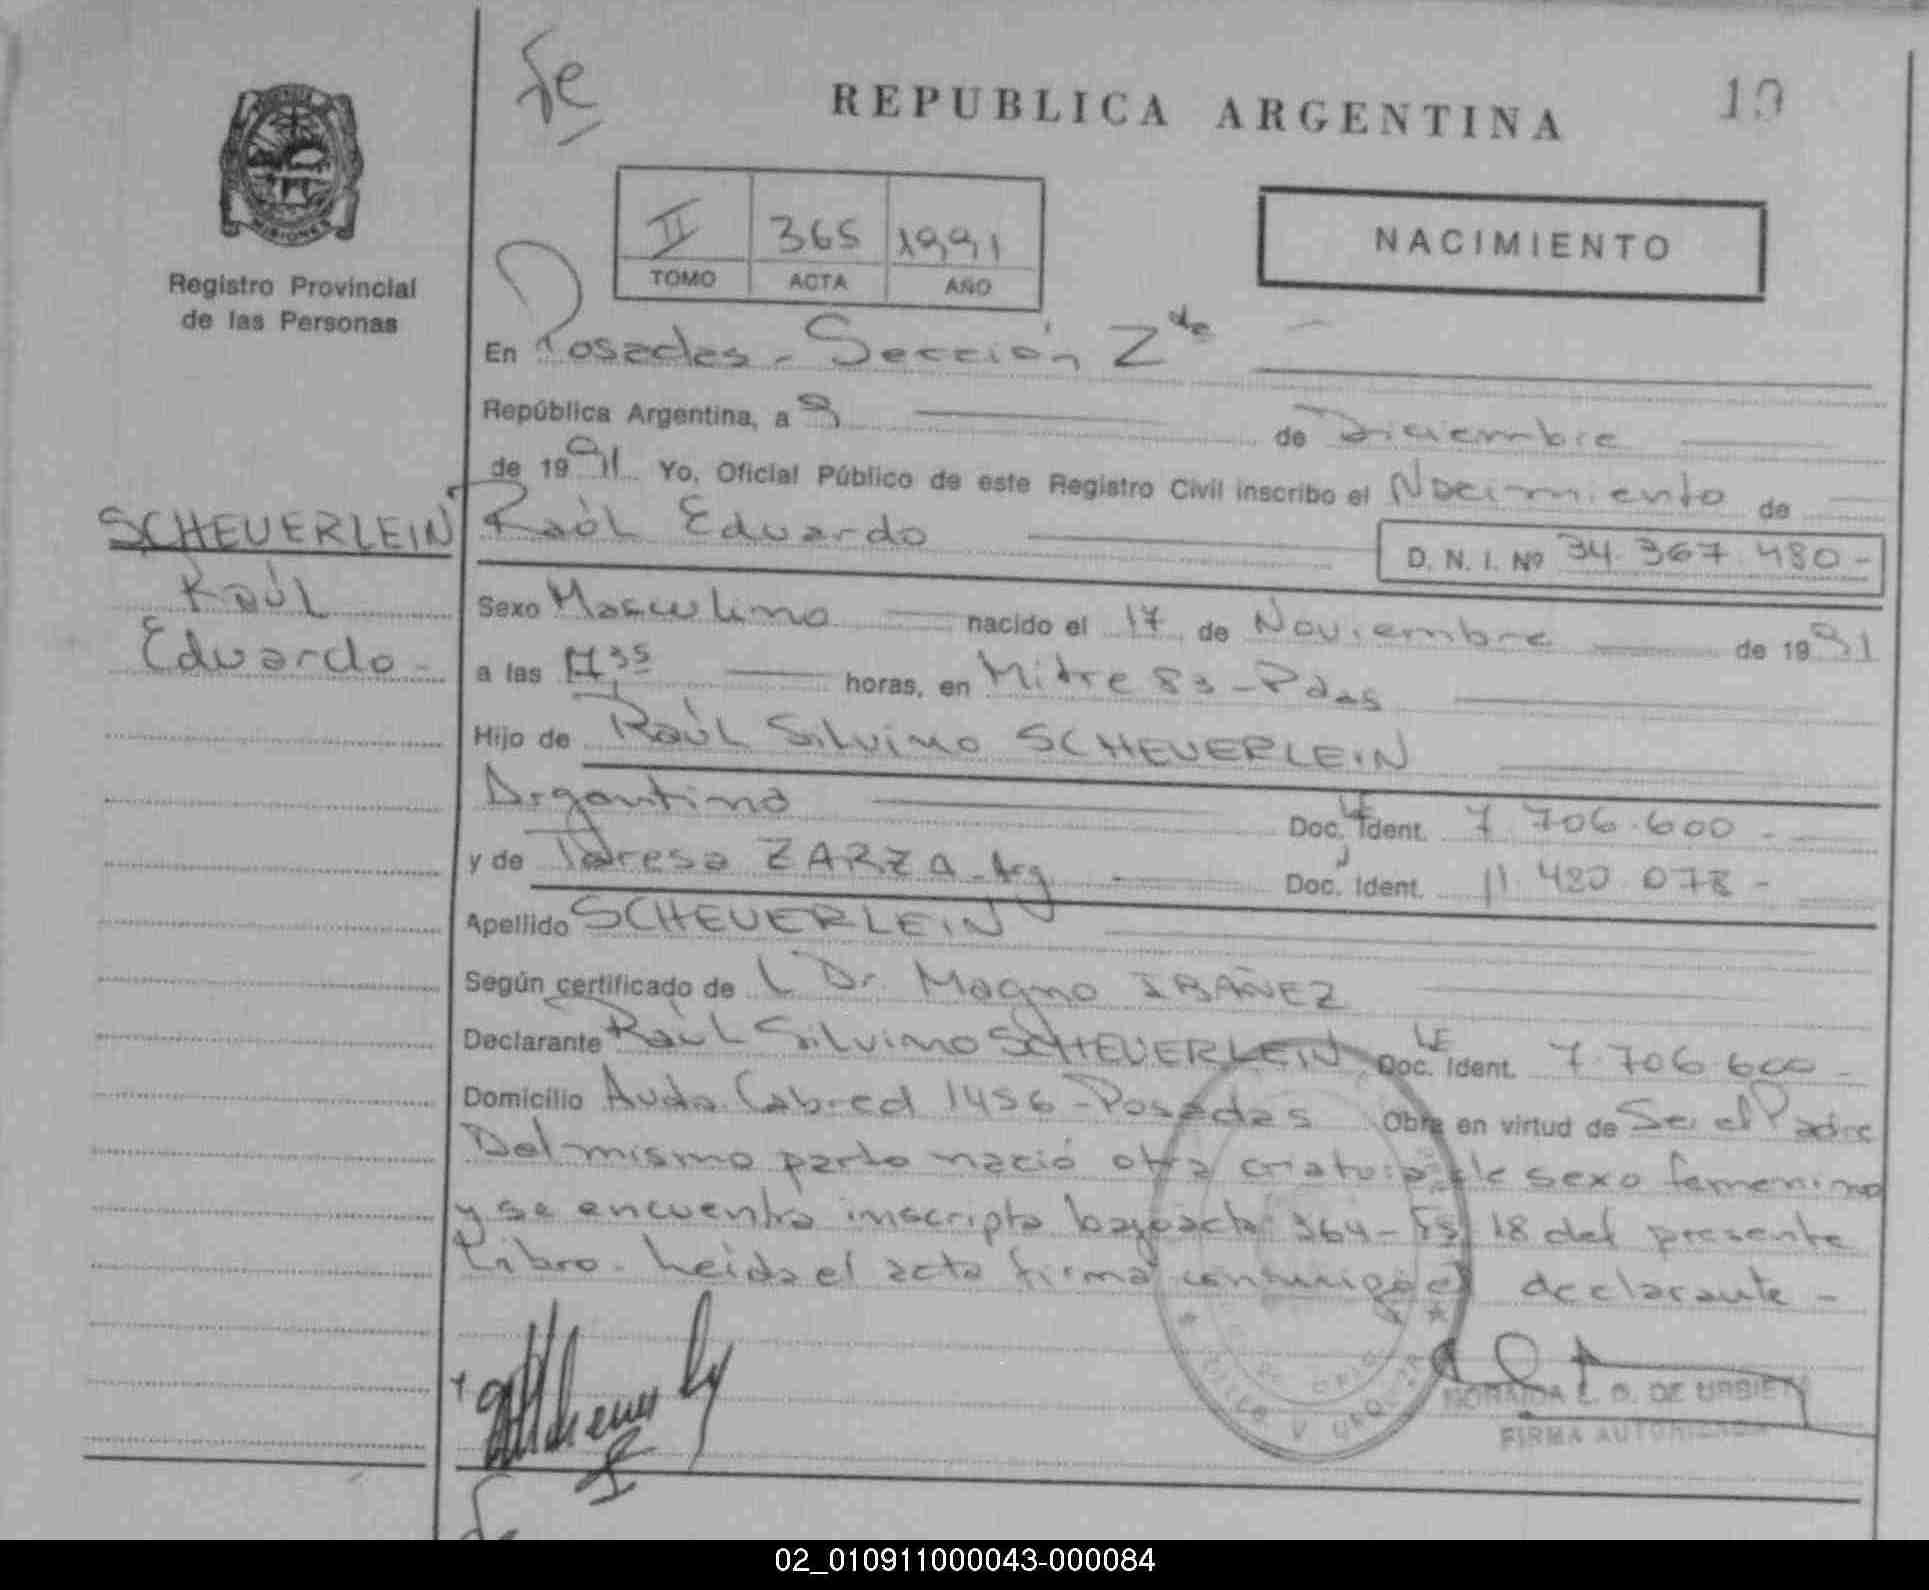 REPUBLICA ARGENTINA
19
II 365 1991
TOMO ACTA AÑO
NACIMIENTO
MISIONES
Registro Provincial
de las Personas
SCHEUERLEIN
Raúl
Eduardo -
En Posadas - Sección 2da
República Argentina, a 9 de Diciembre
de 1991 Yo, Oficial Público de este Registro Civil inscribo el Nacimiento de
Raúl Eduardo D. N. I. Nº 34.367.480 -
Sexo Masculino nacido el 17 de Noviembre de 1991
a las horas, en Mitre 83 - Pdas
Hijo de Raúl Silvino SCHEUERLEIN
Argentino Doc. Ident. LE 7.706.600 -
y de Teresa ZARZA - Arg Doc. Ident. 11.420.078 -
Apellido SCHEUERLEIN
Según certificado de L Dr. Magno IBAÑEZ
Declarante Raúl Silvino SCHEUERLEIN Doc. Ident. LE 7.706.600 -
Domicilio Avda. Cabred 1456 - Posadas Obra en virtud de Ser el Padre
Del mismo parto nació otra criatura de sexo femenino
y se encuentra inscripta bajo acta 364 - Fs 18 del presente
Libro. Leida el acta firma conmigo el declarante -
NORAIDA L. G. DE URBIETA
FIRMA AUTORIZADA
02_010911000043-000084